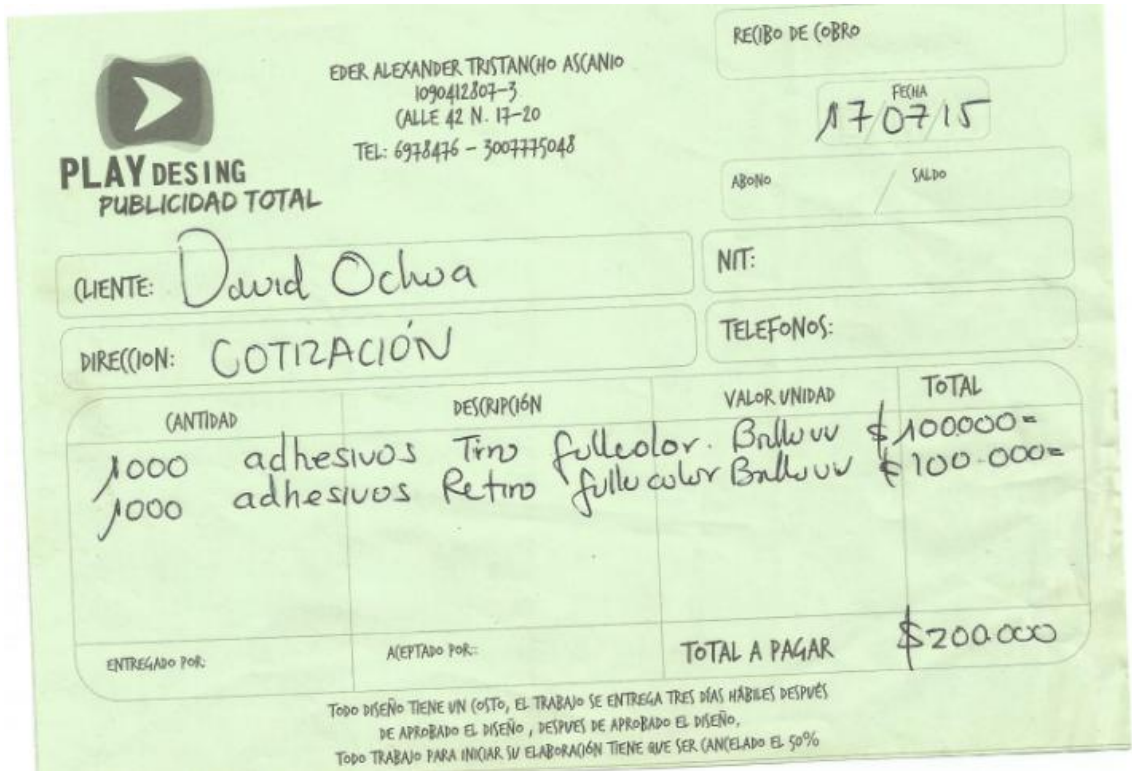 RECIBO DE COBRO
EDER ALEXANDER TRISTANCHO ASCANIO
1090412807-3
CALLE 42 N. 17-20
TEL: 6978476 - 3007775048
FECHA
17/07/15
PLAY DESING
PUBLICIDAD TOTAL
ABONO / SALDO
CLIENTE: David Ochoa
NIT:
DIRECCION: COTIZACIÓN
TELEFONOS:
CANTIDAD DESCRIPCIÓN VALOR UNIDAD TOTAL
1000 adhesivos Tiro fullcolor. Brillo uv $100000=
1000 adhesivos Retiro full color Brillo uv $100.000=
ENTREGADO POR: ACEPTADO POR:: TOTAL A PAGAR $200.000
TODO DISEÑO TIENE UN COSTO, EL TRABAJO SE ENTREGA TRES DÍAS HÁBILES DESPUÉS
DE APROBADO EL DISEÑO , DESPUES DE APROBADO EL DISEÑO,
TODO TRABAJO PARA INICIAR SU ELABORACIÓN TIENE QUE SER CANCELADO EL 50%